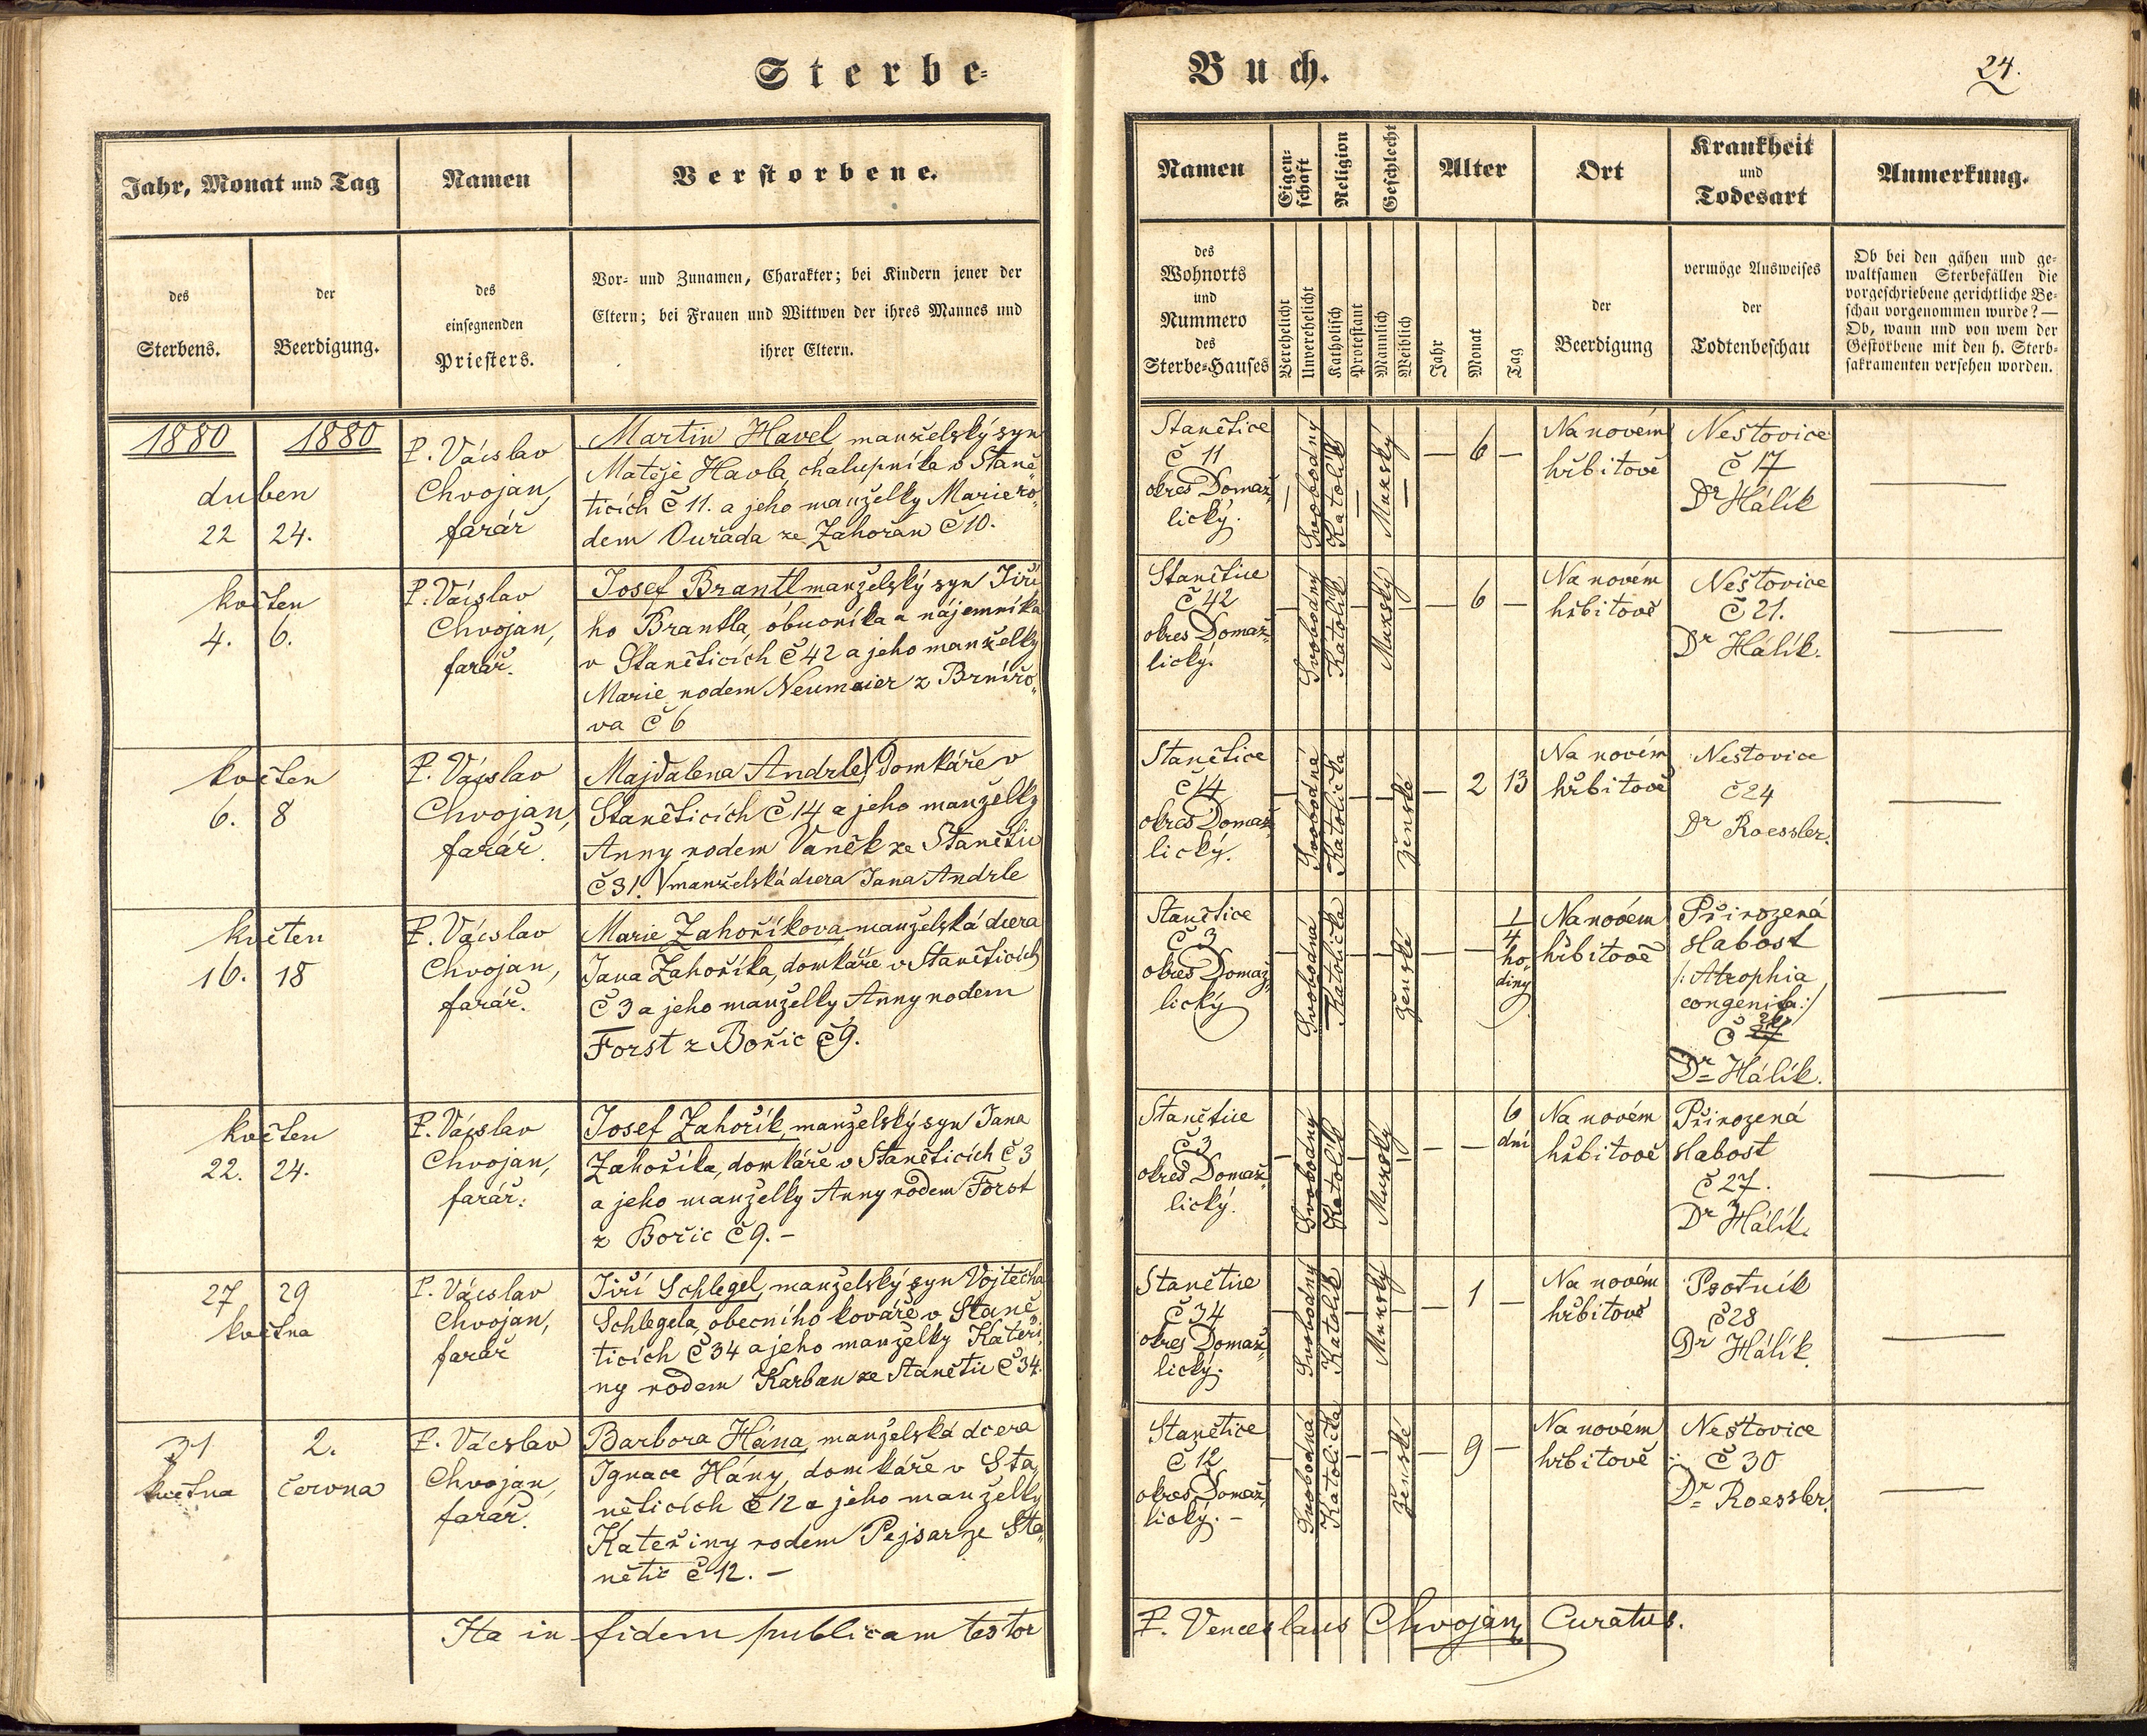 Sterbe-
Buch.
24.
Jahr, Monat und Tag
Namen
Verstorbene.
des
Sterbens.
der
Beerdigung.
des
einsegnenden
Priesters.
Vor- und Zunamen, Charakter; bei Kindern jener der
Eltern; bei Frauen und Wittwen der ihres Mannes und
ihrer Eltern.
Namen
Eigen-
schaft
Religion
Geschlecht
Alter
Ort
Krankheit
und
Todesart
Anmerkung.
des
Wohnorts
und
Nummero
des
Sterbe-Hauses
Verehelicht
Unverehelicht
Katholisch
Protestant
Männlich
Weiblich
Jahr
Monat
Tag
der
Beerdigung
vermöge Ausweises
der
Todtenbeschau
Ob bei den gähen und ge-
waltsamen Sterbefällen die
vorgeschriebene gerichtliche Be-
schau vorgenommen wurde? —
Ob, wann und von wem der
Gestorbene mit den h. Sterb-
sakramenten versehen worden.
1880 1880
duben
22 24.
P. Václav
Chvojan,
farář
Martin Havel manželský syn
Matěje Havla, chalupníka v Staně-
ticích č 11. a jeho manželky Marie ro-
dem Ouřada ze Zahořan č 10.
Stanětice
č 11
okres Domaž-
lický.
Svobodný
Katolík
Mužský
— 6 —
Na novém
hřbitově
Neštovice
č 17
Dr Hálík
květen
4. 6.
P. Václav
Chvojan,
farář.
Josef Brantl manželský syn Jiří-
ho Brantla, obuvníka a nájemníka
v Staněticích č 42 a jeho manželky
Marie rodem Neumaier z Brnířo-
va č 6
Stanětice
č 42
okres Domaž-
lický.
Svobodný
Katolík
Mužský
— 6 —
Na novém
hřbitově
Neštovice
č 21.
Dr Hálík.
květen
6. 8
P. Václav
Chvojan,
farář.
Majdalena Andrle) domkáře v
Staněticích č 14 a jeho manželky
Anny rodem Vaněk ze Stanětic
č 31. ) manželská dcera Jana Andrle
Stanětice
č 14
okres Domaž-
lický.
Svobodná
Katolička
ženské
— 2 13
Na novém
hřbitově
Neštovice
č 24
Dr Roessler.
květen
16. 18
P. Václav
Chvojan,
farář.
Marie Zahoříkova manželská dcera
Jana Zahoříka, domkáře v Staněticích
č 3 a jeho manželky Anny rodem
Forst z Bořic č 9.
Stanětice
č 3
okres Domaž-
lický
Svobodná
Katolička
ženské
— — 1/4
ho-
diny
Na novém
hřbitově
Přirozená
slabost
/: Atrophia
congenita :/
č
Dr Hálík.
květen
22. 24.
P. Václav
Chvojan,
farář.
Josef Zahořík, manželský syn Jana
Zahoříka, domkáře v Staněticích č 3
a jeho manželky Anny rodem Forst
z Bořic č 9. —
Stanětice
č 3
okres Domaž-
lický.
Svobodný
Katolík
Mužský
— — 6
dní
Na novém
hřbitově
Přirozená
slabost
č 27.
Dr Hálík.
27 29
května
P. Václav
Chvojan,
farář
Jiří Schlegel, manželský syn Vojtěcha
Schlegela, obecního kováře v Staně-
ticích č 34 a jeho manželky Kateři-
ny rodem Karban ze Stanětic č 34.
Stanětice
č 34
okres Domaž-
lický.
Svobodný
Katolík
Mužský
— 1 —
Na novém
hřbitově
Psotník
č 28
Dr Hálík
31 2.
května června
P. Václav
Chvojan,
farář.
Barbora Hána, manželská dcera
Ignace Hány, domkáře v Sta-
něticích č 12 a jeho manželky
Kateřiny rodem Pejsar ze Sta-
nětic č 12. —
Stanětice
č 12
okres Domaž-
lický. —
Svobodná
Katolička
ženské
— 9 —
Na novém
hřbitově
Neštovice
č 30
Dr Roessler.
Ita in fidem publicam testor
P. Venceslaus Chvojan, Curatus.